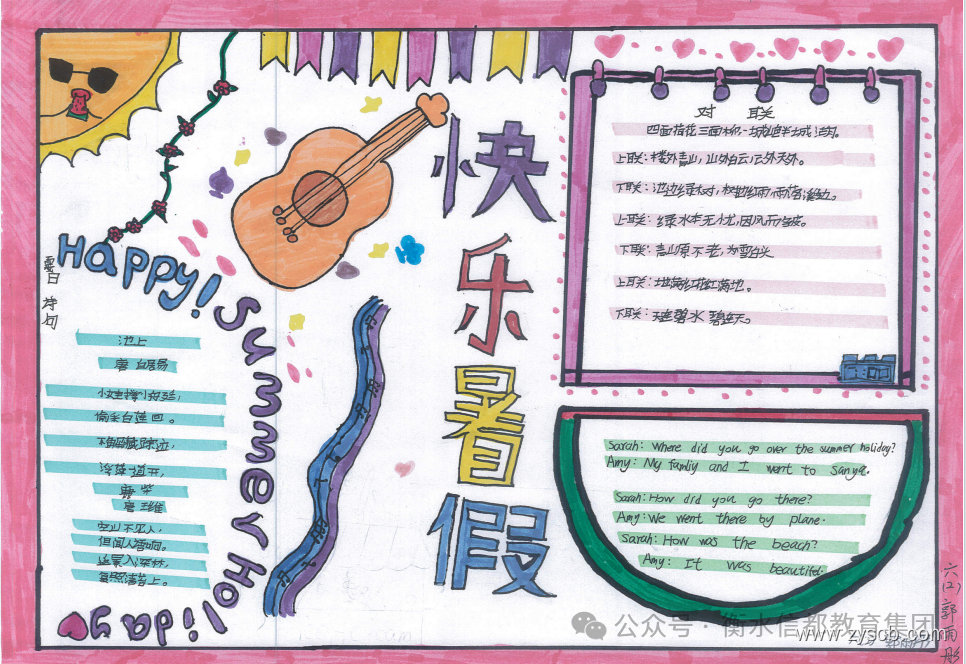 快乐暑假
Happy! Summer Holiday
暑日诗句
池上
唐 白居易
小娃撑小艇,
偷采白莲回。
不解藏踪迹,
浮萍一道开。
鹿柴
唐 王维
空山不见人,
但闻人语响。
返景入深林,
复照青苔上。
对联
四面荷花三面柳,一城山色半城湖。
上联:楼外青山,山外白云,云外天。
下联:池边绿树,树边红雨,雨落溪边。
上联:绿水本无忧,因风而皱波。
下联:青山原不老,为雪白头
上联:
下联:天连碧水碧连天。
Sarah: Where did you go over the summer holiday?
Amy: My famliy and I went to Sanya.
Sarah: How did you go there?
Amy: We went there by plane.
Sarah: How was the beach?
Amy: It was beautiful.
六(2)郭雨彤
公众号·衡水信都教育集团
www.zyscb.com